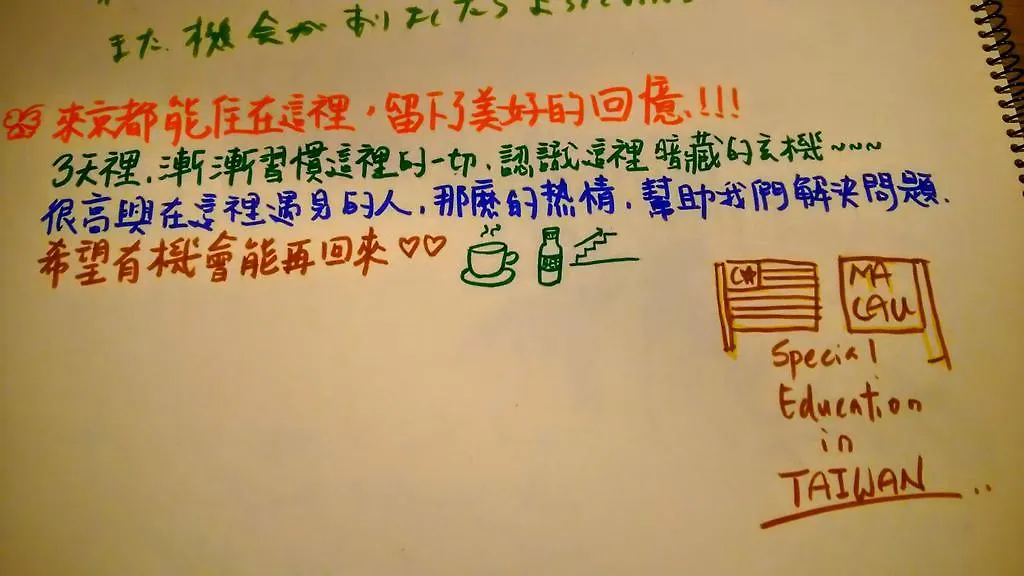 また機会がありましたらよろしく
來京都能住在這裡，留下了美好的回憶!!!
3天裡，漸漸習慣這裡的一切，認識這裡暗藏的玄機~~~
很高興在這裡遇見的人，那麼的热情，幫助我們解決問題.
希望有機會能再回來♡♡
MA
CAU
Special
Education
in
TAIWAN..